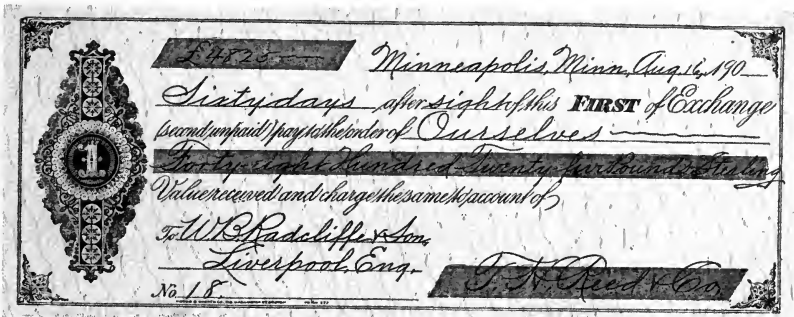 £4825—
Minneapolis, Minn, Aug. 16, 190—
Sixty days after sight of this FIRST of Exchange
(second unpaid) pay to the order of Ourselves
Forty-eight Hundred Twenty Pounds Sterling
Value received and charge the same to account of
To W. B. Radcliffe & Son,
Liverpool, Eng.
T. H. Reed & Co.
No 18
1